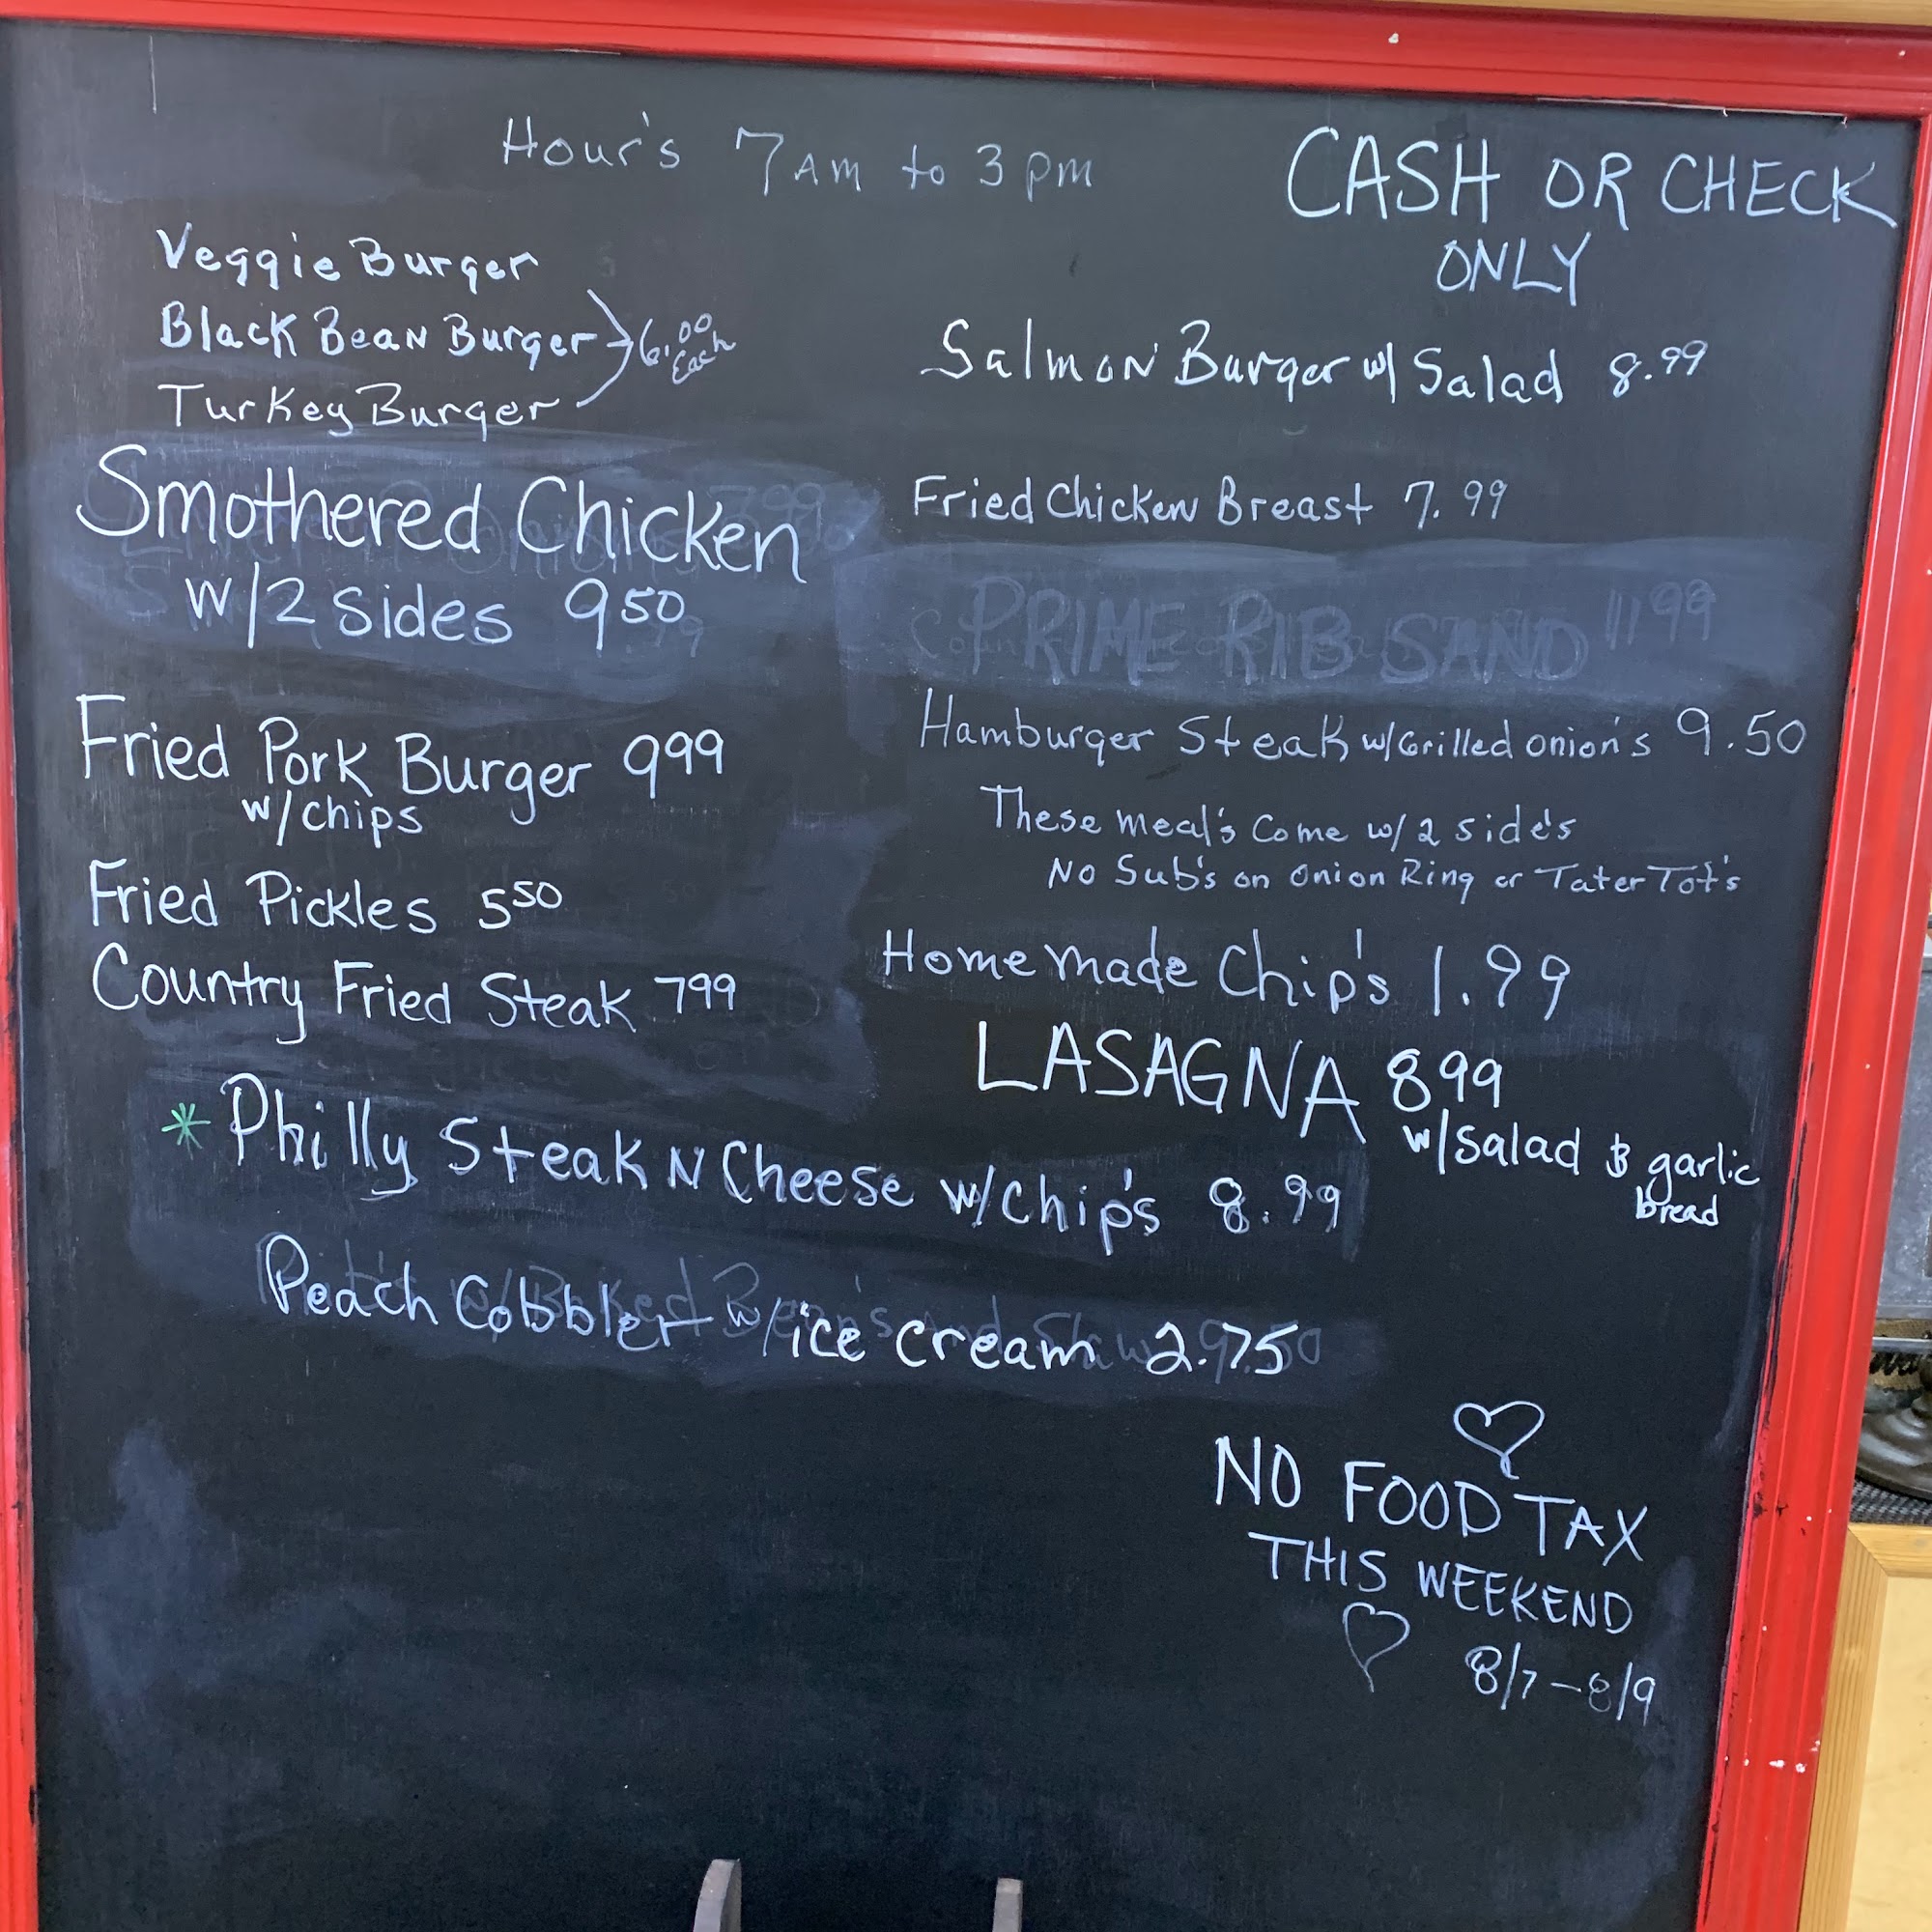 Hour's 7AM to 3pm
CASH OR CHECK
ONLY
Veggie Burger
Black Bean Burger 6.00 Each
Turkey Burger
Smothered Chicken
w/2 sides 9 50
Fried Pork Burger 9 99
w/chips
Fried Pickles 5 50
Country Fried Steak 7 99
Salmon Burger w/ Salad 8.99
Fried Chicken Breast 7.99
PRIME RIB SAND 11 99
Hamburger Steak w/Grilled onion's 9.50
These meal's Come w/ 2 side's
No Sub's on Onion Ring or Tater Tot's
Home made Chip's 1.99
LASAGNA 8 99
w/salad & garlic
bread
* Philly Steak N Cheese w/Chip's 8.99
Peach Cobbler w/ice cream 2.75
NO FOOD TAX
THIS WEEKEND
8/7-8/9